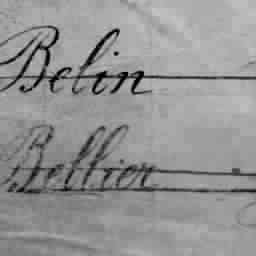 Belin
Bellier